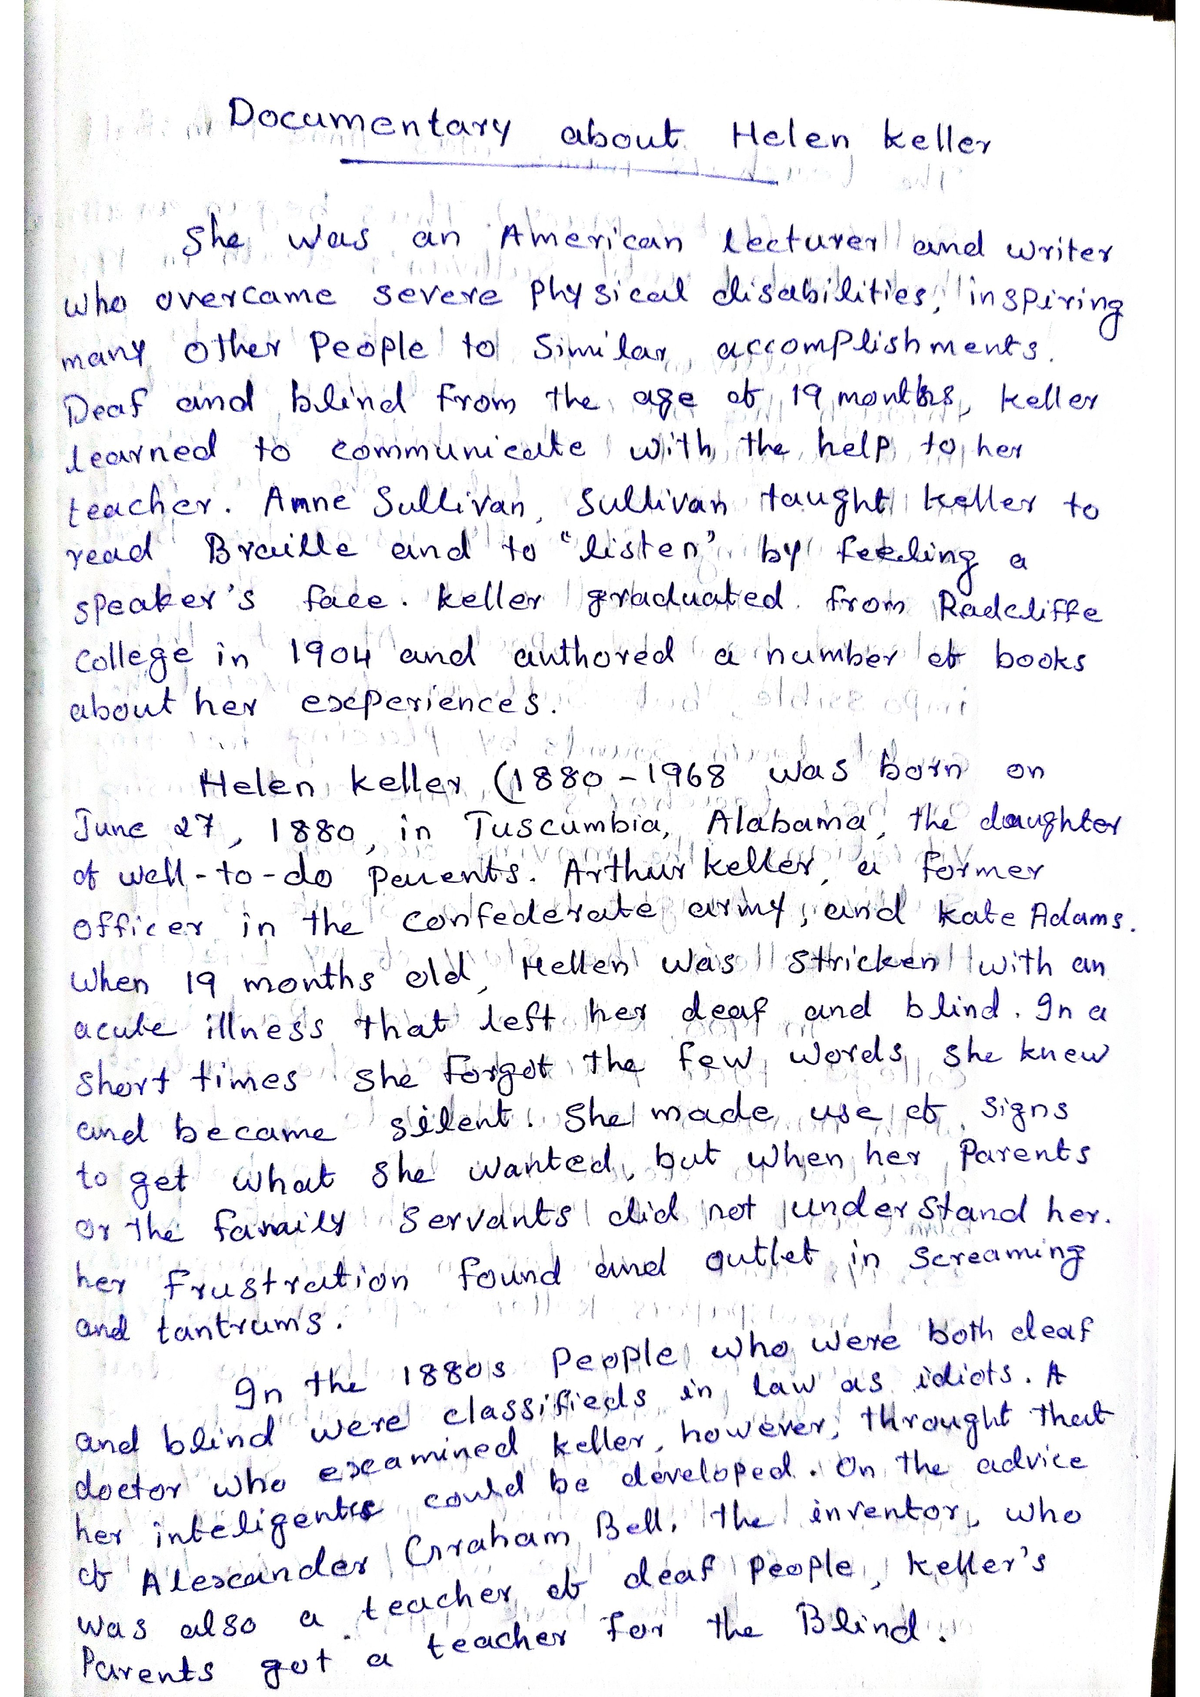 Documentary about Helen keller
She was an American lecturer and writer
who overcame severe physical disabilities, inspiring
many other People to Similar accomplishments.
Deaf and blind from the age of 19 months, keller
learned to communicate with the help to her
teacher. Anne Sullivan, Sullivan taught keller to
read Braille and to "listen" by feeling a
speaker's face. keller graduated from Radcliffe
College in 1904 and authored a number of books
about her experiences.
Helen keller (1880-1968 was born on
June 27, 1880, in Tuscumbia, Alabama, the daughter
of well-to-do parents. Arthur keller, a former
officer in the confederate army, and kate Adams.
When 19 months old, Hellen was stricken with an
acute illness that left her deaf and blind. In a
short times she forgot the few words she knew
and became silent. She made use of signs
to get what she wanted, but when her Parents
or the family Servants did not understand her.
her frustration found and outlet in screaming
and tantrums.
In the 1880s People who were both deaf
and blind were classifieds in law as idiots. A
doctor who examined keller, however, throught that
her inteligentce could be developed. On the advice
of Alexander Graham Bell, the inventor, who
was also a teacher of deaf people, keller's
Parents got a teacher for the Blind.